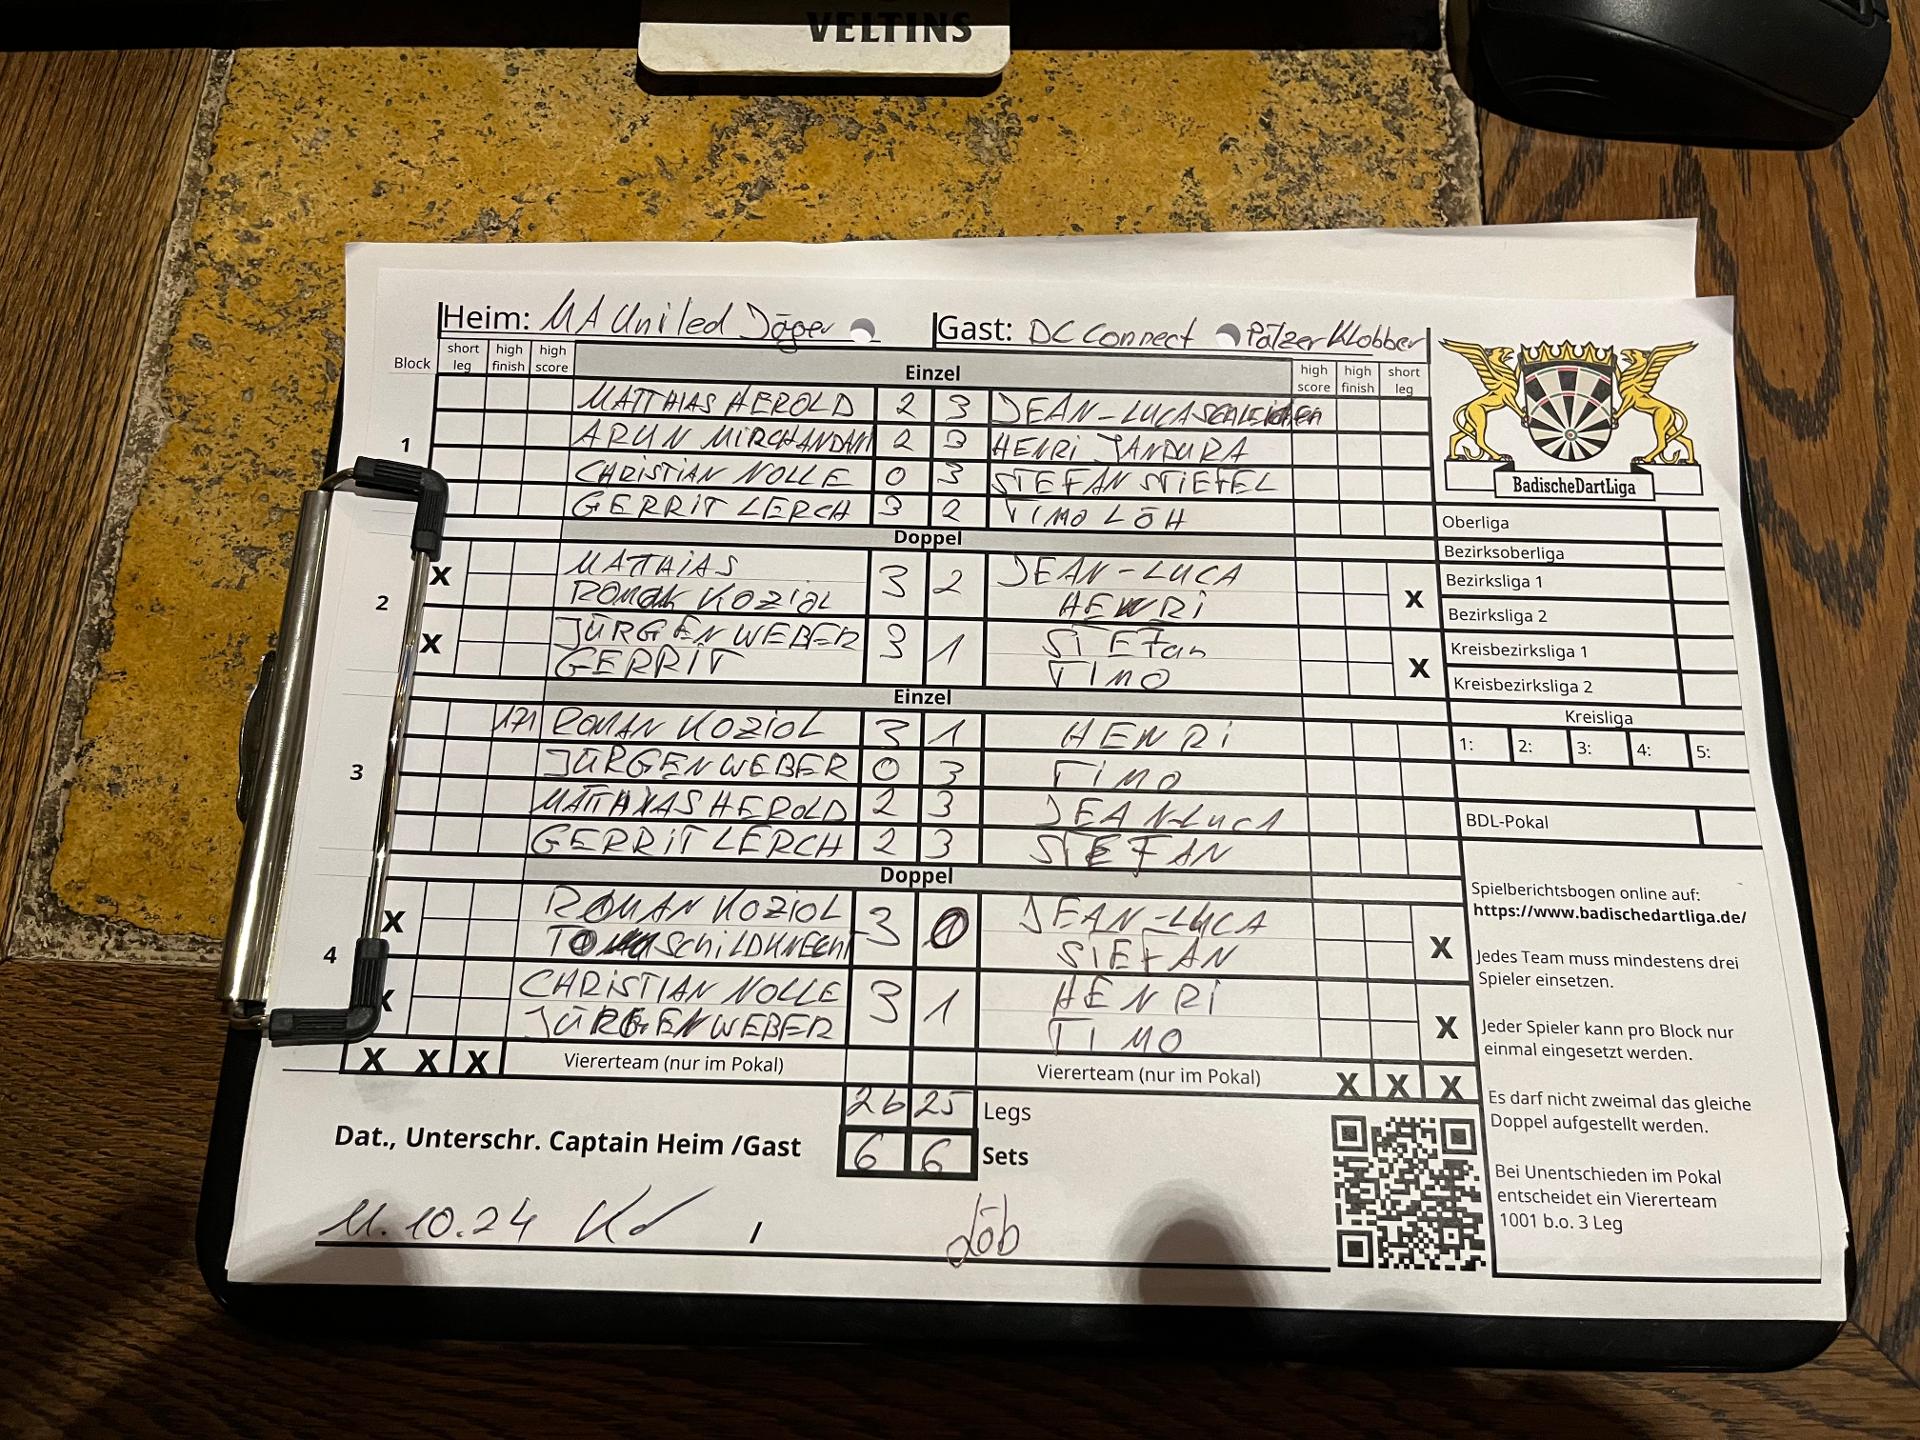 VELTINS
Heim: MA United Jäger Gast: DC Connect Pälzer Klobber
Block short leg high finish high score Einzel high score high finish short leg
MATTHIAS HEROLD 2 3 JEAN-LUCA
1 ARUN MIRCHANDANI 2 3 HENRI JANDURA
CHRISTIAN NOLLE 0 3 STEFAN STIEFEL
GERRIT LERCH 3 2 TIMO LÖH
Doppel
X MATTHIAS 3 2 JEAN-LUCA X
2 ROMAN KOZIOL HENRI
X JÜRGEN WEBER 3 1 STEFan X
GERRIT TIMO
Einzel
171 ROMAN KOZIOL 3 1 HENRI
3 JÜRGEN WEBER 0 3 TIMO
MATTHIAS HEROLD 2 3 JEAN-LucA
GERRIT LERCH 2 3 STEFAN
Doppel
X ROMAN KOZIOL 3 JEAN-LUCA X
4 SCHILDKNECHT STEFAN
X CHRISTIAN NOLLE 3 1 HENRI X
JÜRGEN WEBER TIMO
X X X Vierer­team (nur im Pokal) Viererteam (nur im Pokal) X X X
26 25 Legs
Dat., Unterschr. Captain Heim /Gast 6 6 Sets
11.10.24 / Löh
BadischeDartLiga
Oberliga
Bezirksoberliga
Bezirksliga 1
Bezirksliga 2
Kreisbezirksliga 1
Kreisbezirksliga 2
Kreisliga
1: 2: 3: 4: 5:
BDL-Pokal
Spielberichtsbogen online auf:
https://www.badischedartliga.de/
Jedes Team muss mindestens drei
Spieler einsetzen.
Jeder Spieler kann pro Block nur
einmal eingesetzt werden.
Es darf nicht zweimal das gleiche
Doppel aufgestellt werden.
Bei Unentschieden im Pokal
entscheidet ein Viererteam
1001 b.o. 3 Leg